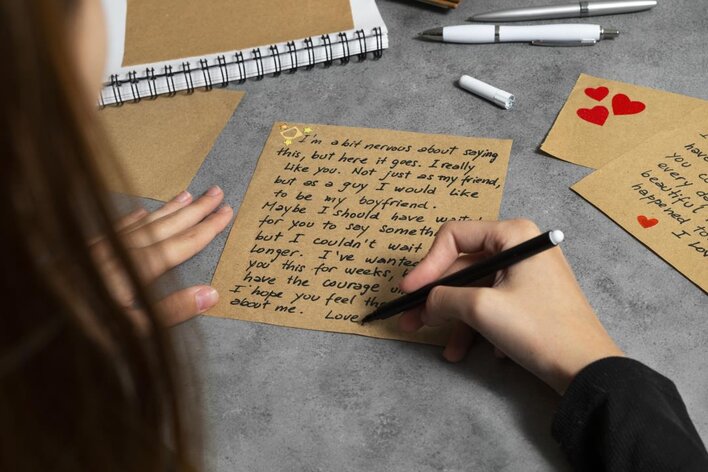 I'm a bit nervous about saying
this, but here it goes. I really
like you. Not just as my friend,
but as a guy I would like
to be my boyfriend.
Maybe I should have
for you to say
but I couldn't wait
longer. I've wanted
you this for weeks,
have the courage
I hope you feel
about me. Love
you
every
beautiful
happened to
I